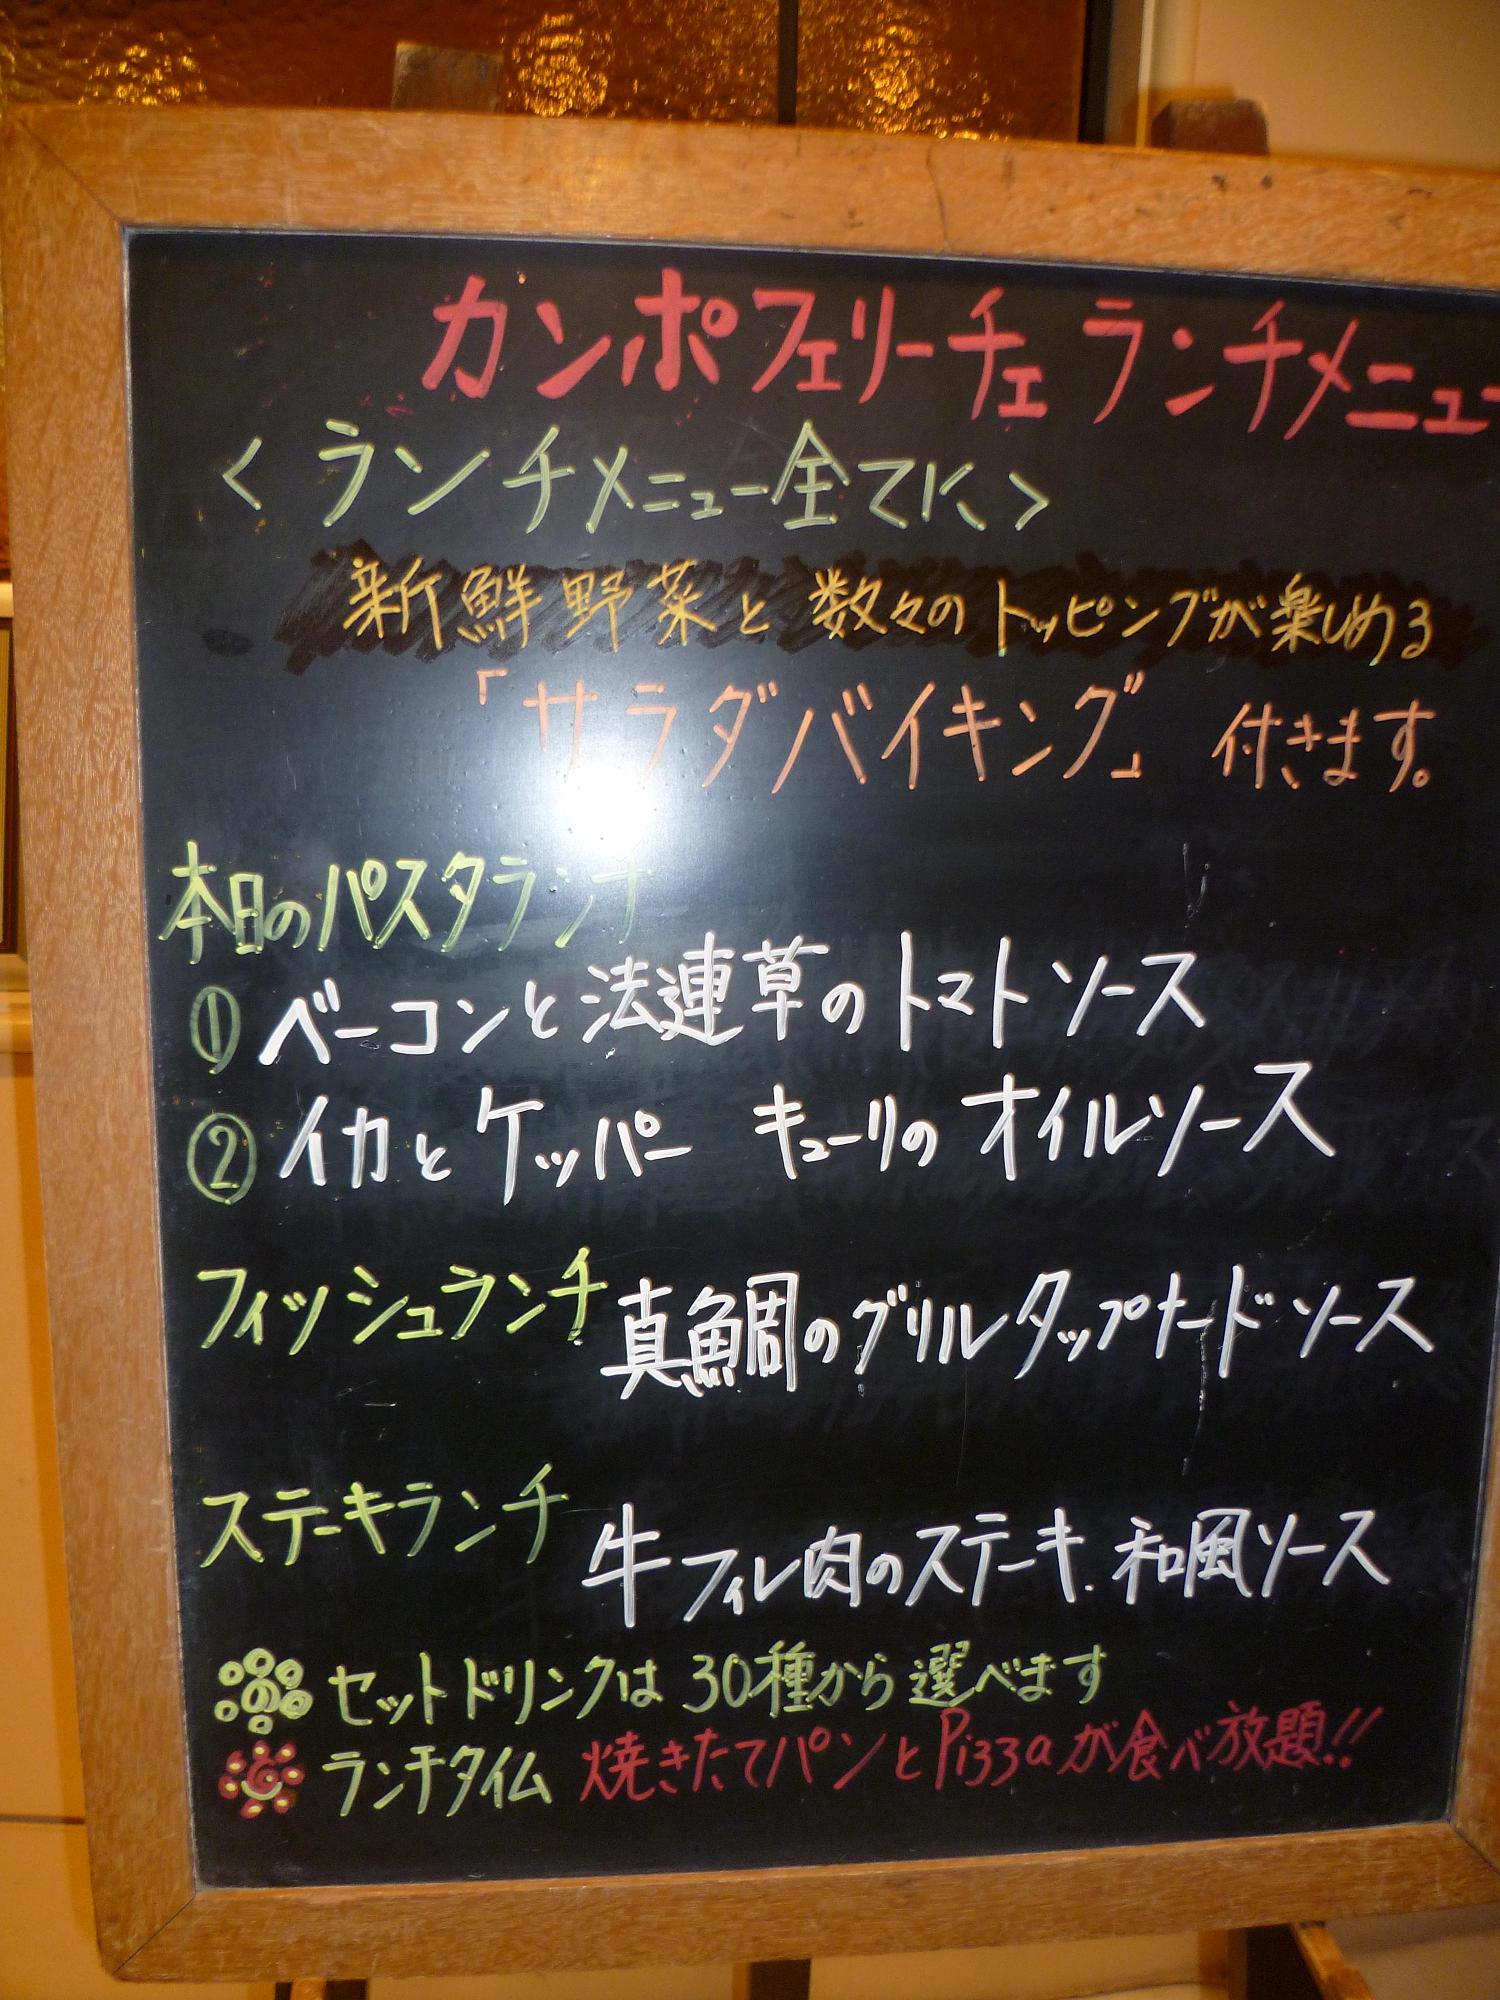 カンポフェリーチェ ランチメニュー
<ランチメニュー全てに>
新鮮野菜と数々のトッピングが楽しめる
「サラダバイキング」付きます。
本日のパスタランチ
① ベーコンと法連草のトマトソース
② イカとケッパー キューリのオイルソース
フィッシュランチ 真鯛のグリルタップナードソース
ステーキランチ 牛フィレ肉のステーキ.和風ソース
セットドリンクは30種から選べます
ランチタイム 焼きたてパンとPizzaが食べ放題!!